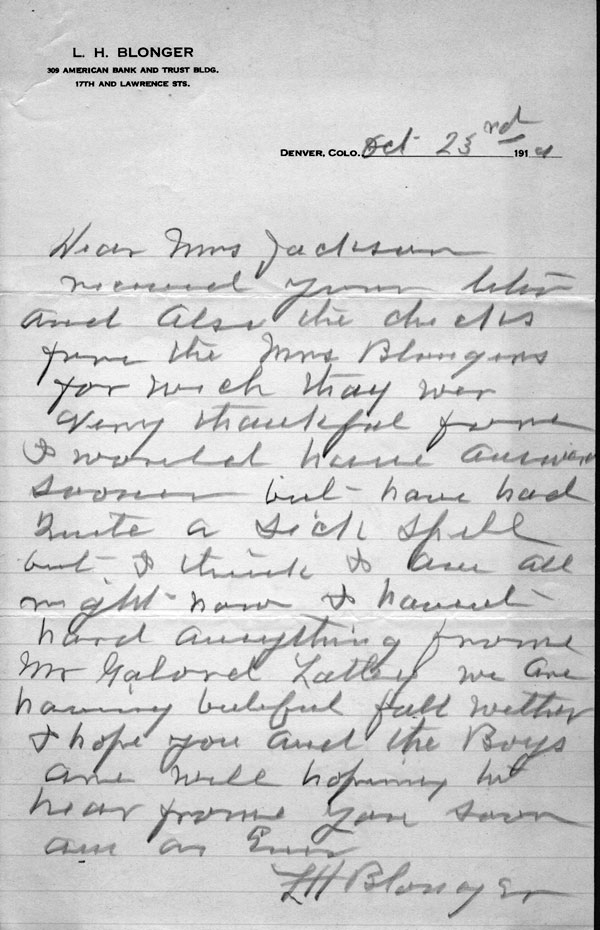 L. H. BLONGER
309 AMERICAN BANK AND TRUST BLDG.
17TH AND LAWRENCE STS.
DENVER, COLO. Oct 23rd 191
Dear Mrs Jackson
recived your letter
and Also the checks
frme the Mrs Blongers
for wich thay wer
very thankful for
I would have answer
sooner but have had
Quite a sick spell
but I think I am all
right now I havent
hard anything frome
Mr Galord Latley we are
having butful fall wether
I hope you and the Boys
are well hoping to
hear frome you soon
am as Ever
LH Blonger